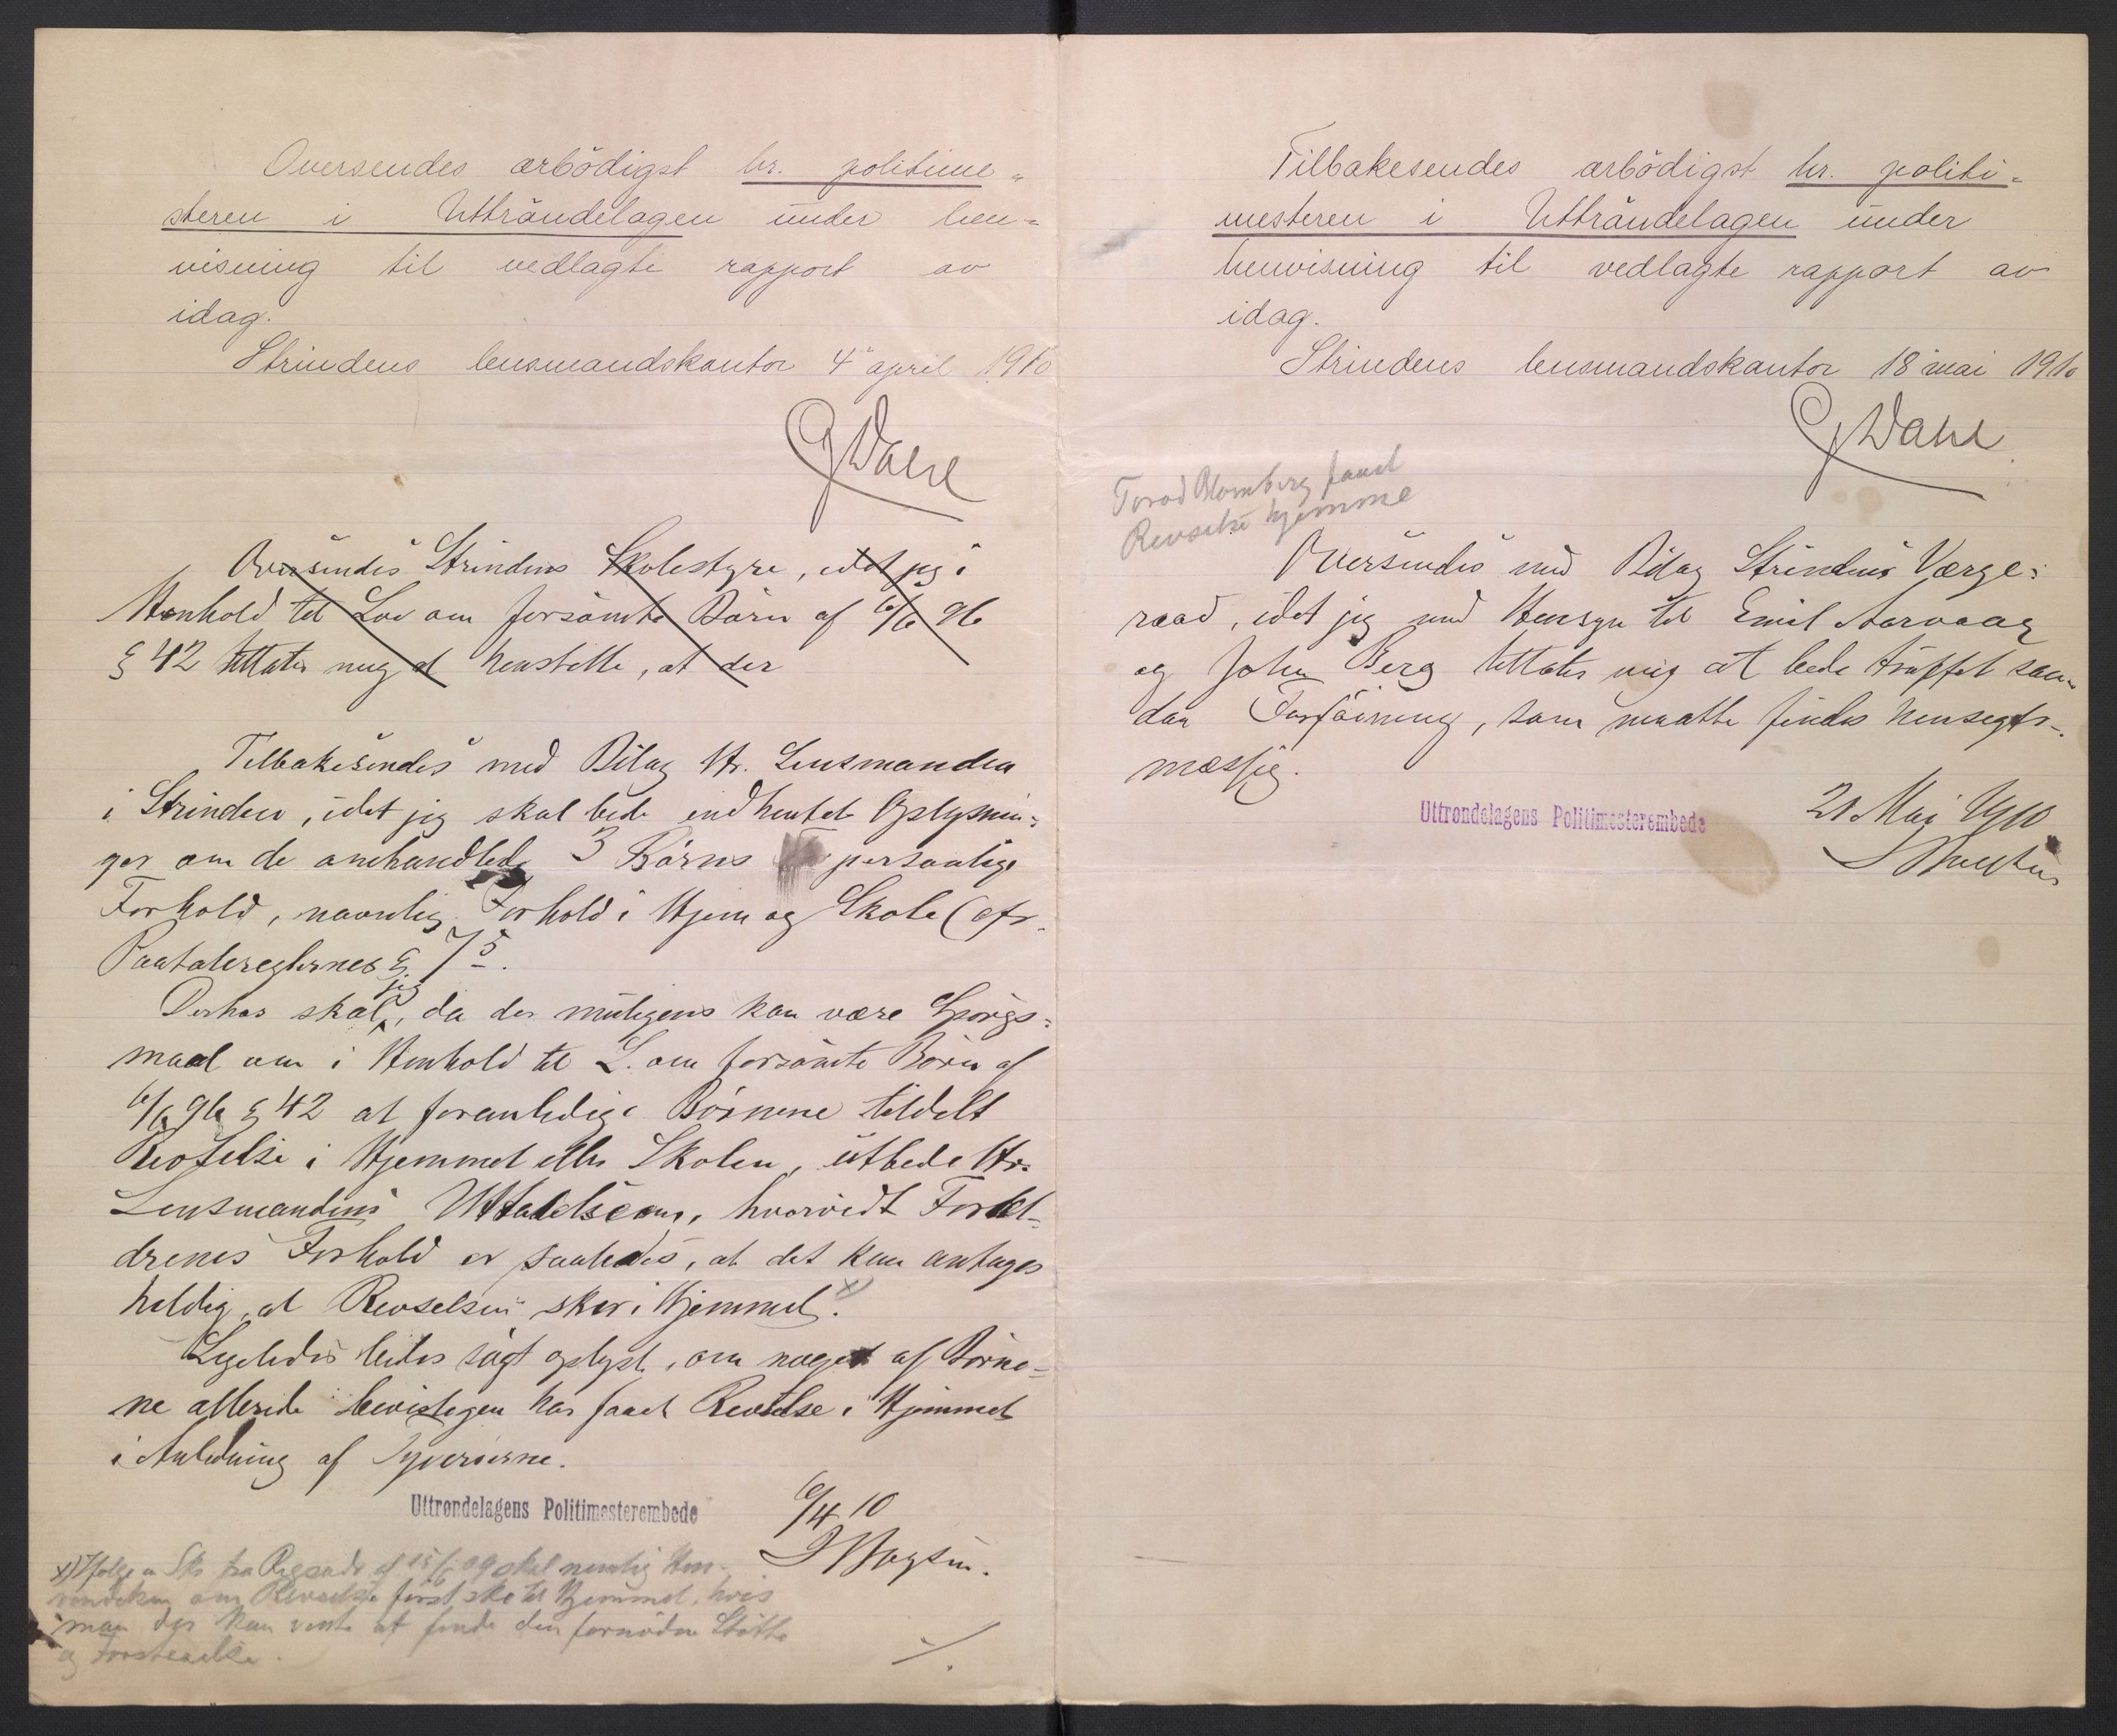 Oversendes ærbödigst hr. politime-
steren i Uttröndelagen under hen-
visning til vedlagte rapport av
idag.
Strindens lensmandskontor 4 april 1910
G Dahl
Oversendes Strindens Skolestyre, idet jeg i
Henhold til Lov om forsömte Börn af 6/6 96
§ 42 tillater mig at henstille, at der
Tilbakesendes med Bilag Hr. Lensmanden
i Strinden, idet jeg skal bede indhentet Oplysnin-
ger om de omhandlede 3 Börns personlige
Forhold, navnlig Forhold i Hjem og Skole (cfr.
Paatalereglernes § 75.
Derhos skal jeg, da der muligens kan være Spörgs-
maal om i Henhold til L. om forsömte Börn af
6/6 96 § 42 at foranledige Börnene tildelt
Revselse i Hjemmet eller Skolen, utbede Hr.
Lensmandens Uttalelse om, hvorvidt Foræl-
drenes Forhold er saaledes, at det kan antages
heldig, at Revselsen sker i Hjemmet x).
Ligeledes bedes sögt oplyst, om noget af Börne-
ne allerede bevislegen har faaet Revselse i Hjemmet
i Anledning af Tyverierne.
Uttrøndelagens Politimesterembede
6/4 10
x) Ifølge Sk. fra Rigsadv. af 15/6 09 skal nemlig Hen-
vendelsen om Revselse först ske til Hjemmet, hvis
man der kan vente at finde den fornödne Stötte
og Forstaaelse.
./.
Tilbakesendes ærbödigst hr. politi-
mesteren i Uttröndelagen under
henvisning til vedlagte rapport av
idag.
Strindens lensmandskontor 18 mai 1910
G Dahl
Torod Blomberg faaet
Revselse hjemme
Oversendes med Bilag Strindens Værge-
raad, idet jeg med Hensyn til Emil Aarvaag
og John Berg tillater mig at bede truffet saa-
dan Forföining, som maatte findes hensigts-
mæssig.
Uttrøndelagens Politimesterembede
21 Mai 1910